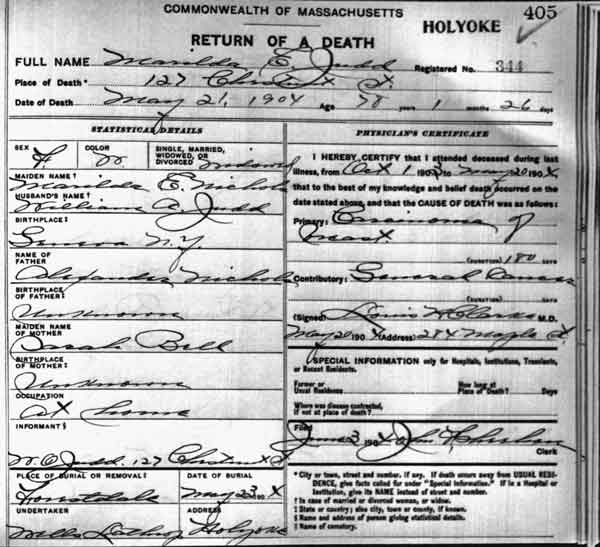 COMMONWEALTH OF MASSACHUSETTS
405
HOLYOKE
RETURN OF A DEATH
FULL NAME Marilda E. Judd Registered No. 344
Place of Death* 127 Chestnut St.
Date of Death May 21, 1904 Age 78 years 1 months 26 days
STATISTICAL DETAILS
SEX F COLOR W SINGLE, MARRIED, WIDOWED, OR DIVORCED Widowed
MAIDEN NAME†
Marilda E. Nichols
HUSBAND'S NAME†
William A. Judd
BIRTHPLACE‡
Geneva N.Y.
NAME OF FATHER
Alexander Nichols
BIRTHPLACE OF FATHER‡
Unknown
MAIDEN NAME OF MOTHER
Sarah Bell
BIRTHPLACE OF MOTHER‡
Unknown
OCCUPATION
At home
INFORMANT§
W. O. Judd. 127 Chestnut St
PLACE OF BURIAL OR REMOVAL‡ DATE OF BURIAL
Forestdale May 23 1904
UNDERTAKER ADDRESS
Holyoke
PHYSICIAN'S CERTIFICATE
I HEREBY CERTIFY that I attended deceased during last
illness, from Oct 1 1903 to May 20 1904,
that to the best of my knowledge and belief death occurred on
date stated above, and that the CAUSE OF DEATH was as follows:
Primary: Carcinoma of
Breast.
(DURATION) 180 DAYS
Contributory: General Cancer
(DURATION) DAYS
(Signed) Louis M. Clarke M.D.
May 20 1904 (Address) 284 Maple St.
SPECIAL INFORMATION only for Hospitals, Institutions, Transients,
or Recent Residents.
Former or Usual Residence How long at Place of Death? Days
Where was disease contracted,
if not at place of death?
Filed
June 3 1904
Clerk
* City or town, street and number, if any. If death occurs away from USUAL RESI-
DENCE, give facts called for under "Special Information." If in a Hospital or
Institution, give its NAME instead of street and number.
† In case of married or divorced woman, or widow.
‡ State or country; also city, town or county, if known.
§ Name and address of person giving statistical details.
‡ Name of cemetery.